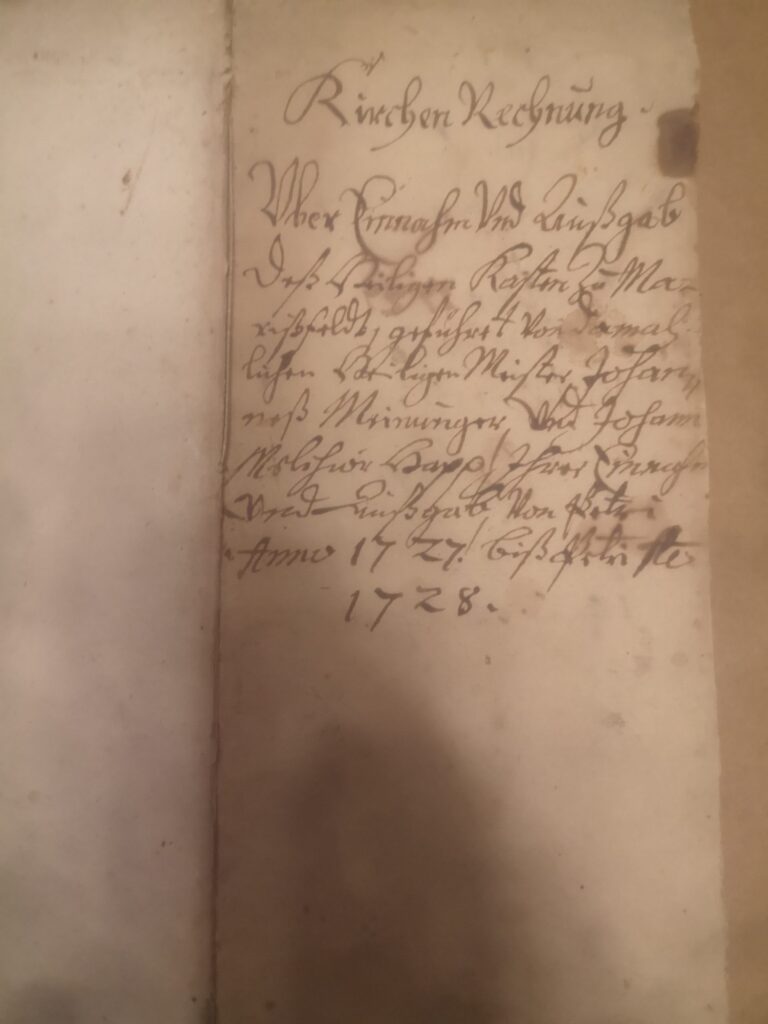 Kirchen Rechnung.
Uber Einnahm Und Außgab
deß Heiligen Kasten Zu Ma-
rißfeldt, geführet von damah-
lichen Heiligen Meister Johan-
neß Meinunger, Und Johann
Melchior Happ, Ihrer Einnahm
Und Außgab, Von Petri
Anno 1727. biß Petri
1728.